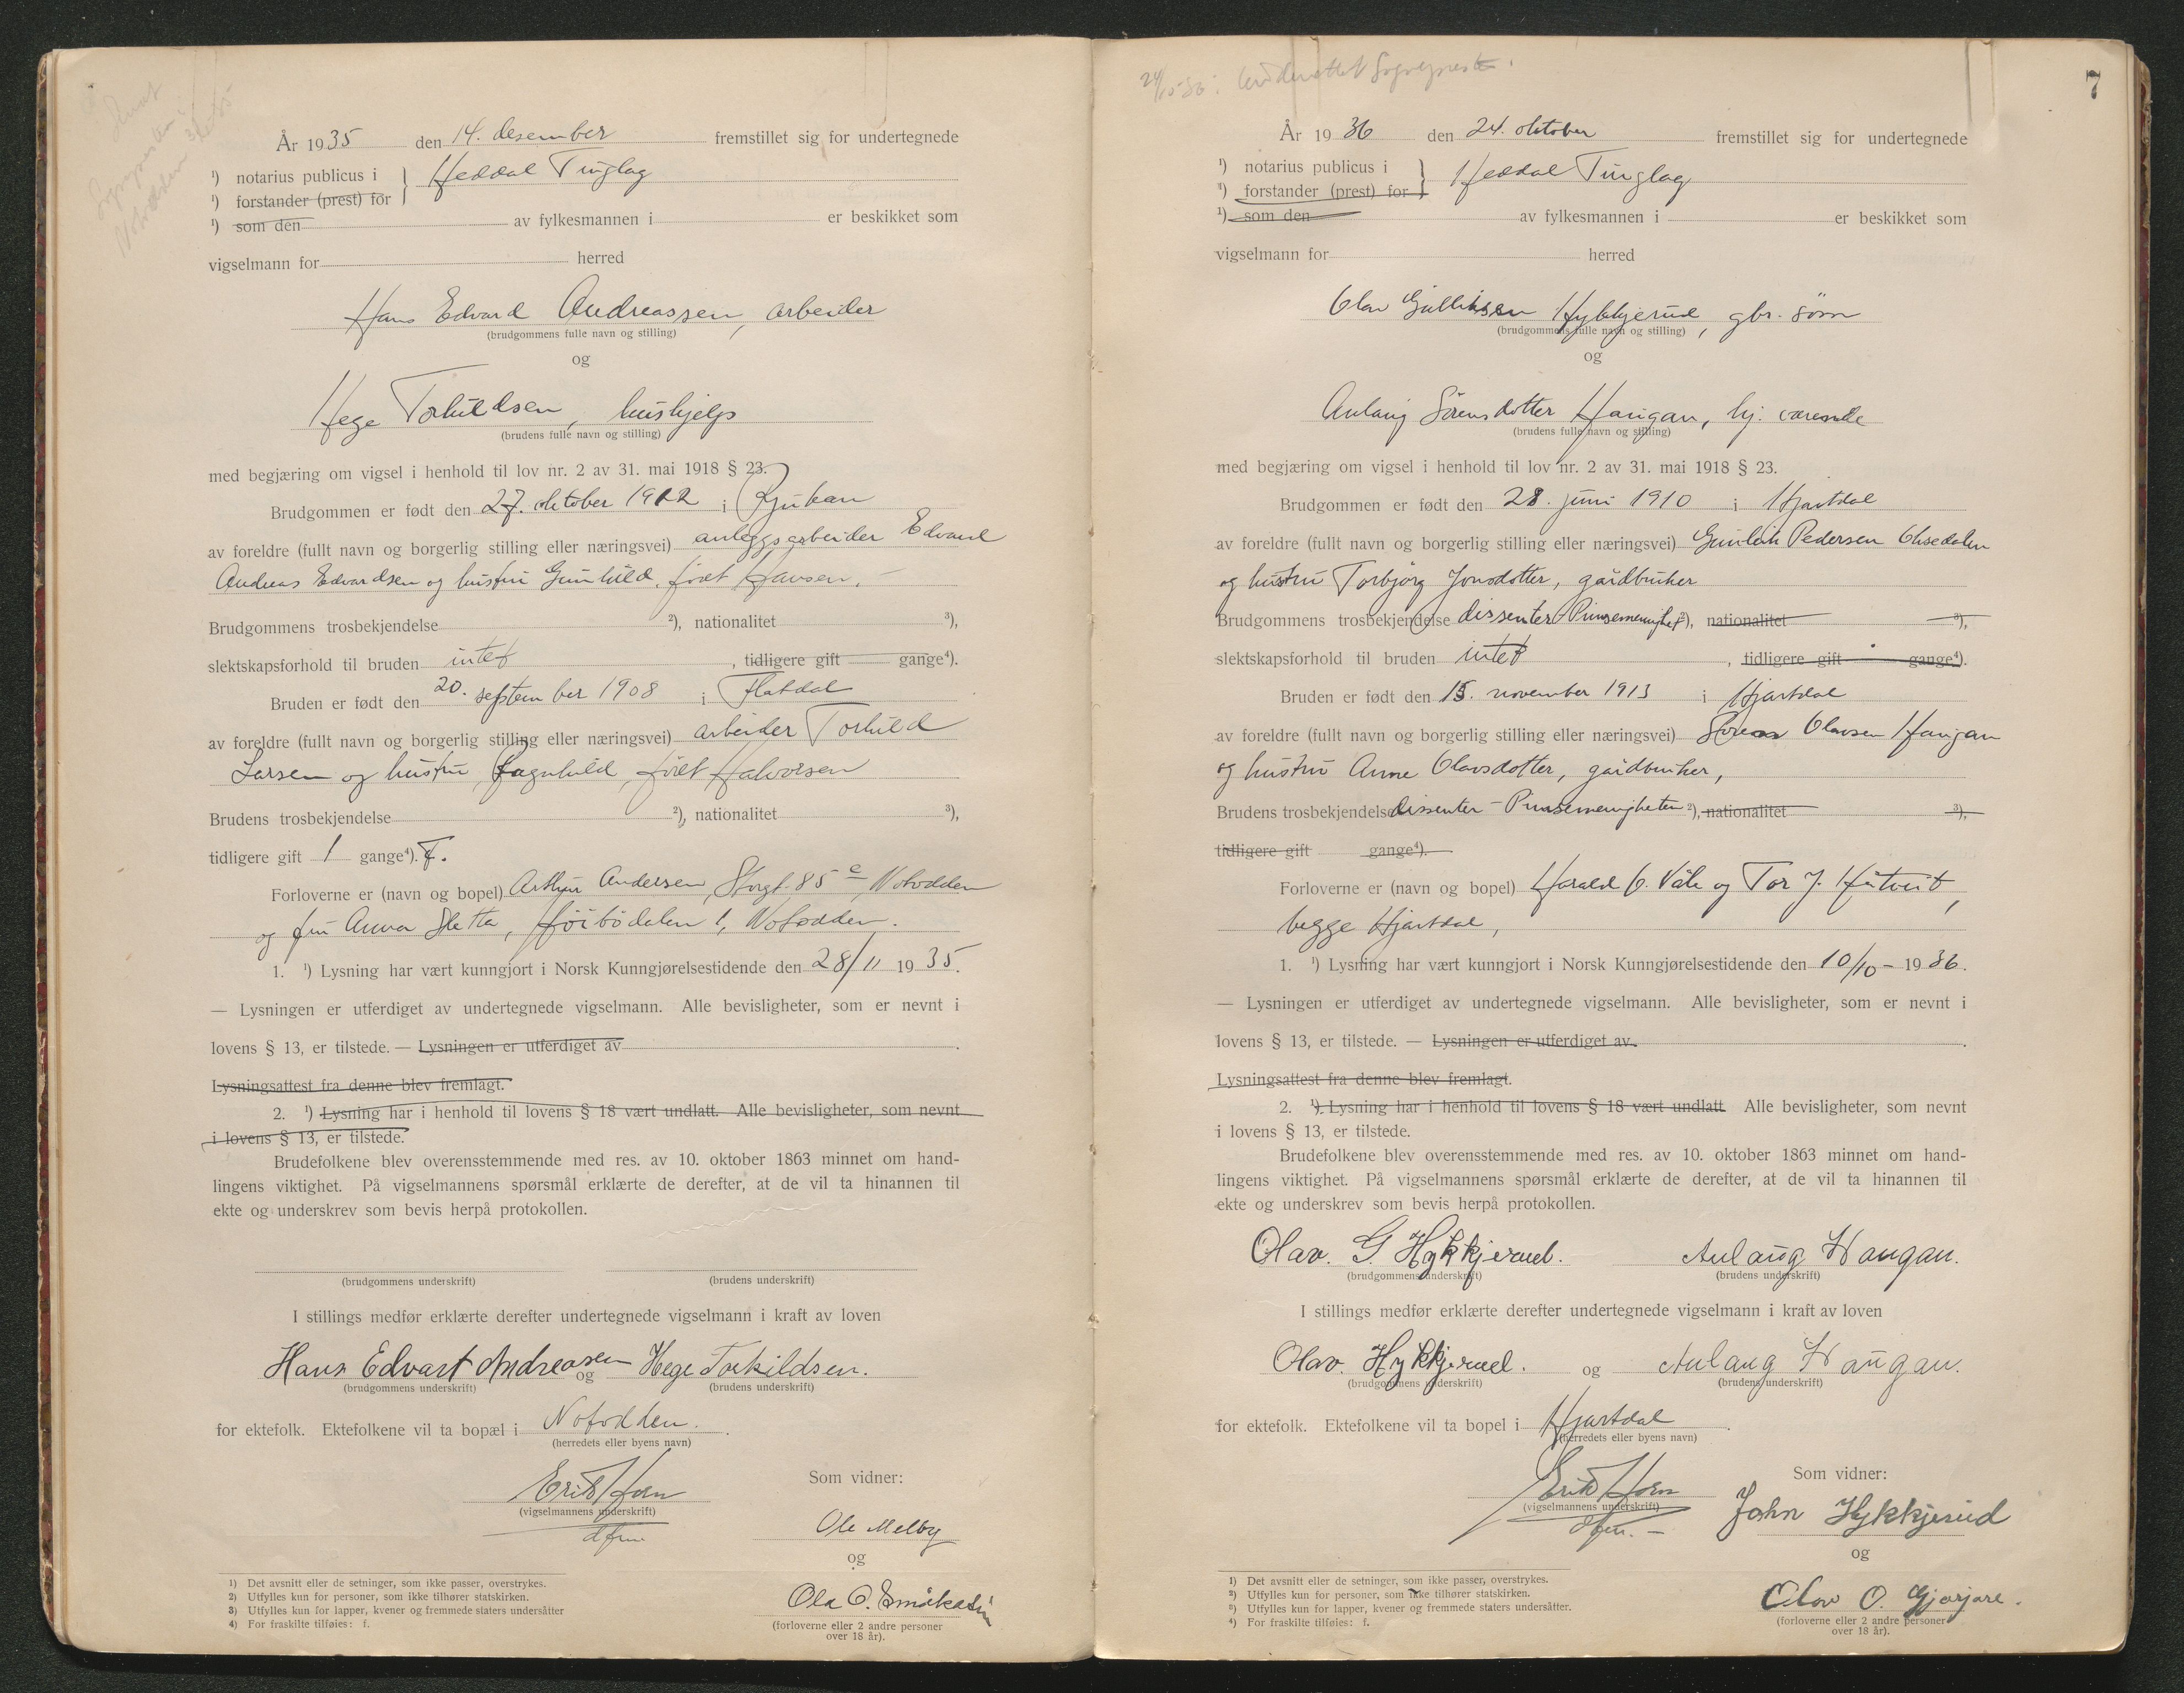 Sogneprest i
Notodden
År 1935 den 14. desember fremstillet sig for undertegnede
¹) notarius publicus i } Heddal Tinglag
¹) forstander (prest) for
¹) som den av fylkesmannen i er beskikket som
vigselmann for herred
Hans Edvard Andreassen, arbeider
(brudgommens fulle navn og stilling)
og
Hege Torkildsen, hushjelp
(brudens fulle navn og stilling)
med begjæring om vigsel i henhold til lov nr. 2 av 31. mai 1918 § 23.
Brudgommen er født den 27. oktober 1912 i Rjukan
av foreldre (fullt navn og borgerlig stilling eller næringsvei) anleggsarbeider Edvard
Andreas Edvardsen og hustru Gunhild, født Hansen. –
Brudgommens trosbekjendelse ²), nationalitet ³),
slektskapsforhold til bruden intet , tidligere gift gange⁴).
Bruden er født den 20. september 1908 i Flatdal
av foreldre (fullt navn og borgerlig stilling eller næringsvei) arbeider Torkild
Larsen og hustru Ragnhild, født Halvorsen
Brudens trosbekjendelse ²), nationalitet ³),
tidligere gift 1 gange⁴). F.
Forloverne er (navn og bopel) Arthur Andersen, Storgt. 85 c, Notodden
og fru Anna Sletta, Notodden.
1. ¹) Lysning har vært kunngjort i Norsk Kunngjørelsestidende den 28/11 1935.
— Lysningen er utferdiget av undertegnede vigselmann. Alle bevisligheter, som er nevnt i
lovens § 13, er tilstede. — Lysningen er utferdiget av .
Lysningsattest fra denne blev fremlagt.
2. ¹) Lysning har i henhold til lovens § 18 vært undlatt. Alle bevisligheter, som nevnt
i lovens § 13, er tilstede.
Brudefolkene blev overensstemmende med res. av 10. oktober 1863 minnet om hand-
lingens viktighet. På vigselmannens spørsmål erklærte de derefter, at de vil ta hinannen til
ekte og underskrev som bevis herpå protokollen.
(brudgommens underskrift) (brudens underskrift)
I stillings medfør erklærte derefter undertegnede vigselmann i kraft av loven
Hans Edvart Andreasen og Hege Torkildsen.
(brudgommens underskrift) (brudens underskrift)
for ektefolk. Ektefolkene vil ta bopæl i Notodden.
(herredets eller byens navn)
Erik Horn Som vidner:
(vigselmannens underskrift)
dfm
Ole Melby
og
Ola O.
(forloverne eller 2 andre personer
over 18 år).
1) Det avsnitt eller de setninger, som ikke passer, overstrykes.
2) Utfylles kun for personer, som ikke tilhører statskirken.
3) Utfylles kun for lapper, kvener og fremmede staters undersåtter
4) For fraskilte tilføies: f.
7
24/10-36: underrettet Sogneprest.
År 1936 den 24. oktober fremstillet sig for undertegnede
¹) notarius publicus i } Heddal Tinglag
¹) forstander (prest) for
¹) som den av fylkesmannen i er beskikket som
vigselmann for herred
Olav Gulliksen Hykkjerud, gbr. sønn
(brudgommens fulle navn og stilling)
og
Aulaug Sørensdotter Haugan, hj. værende
(brudens fulle navn og stilling)
med begjæring om vigsel i henhold til lov nr. 2 av 31. mai 1918 § 23.
Brudgommen er født den 28. juni 1910 i Hjartdal
av foreldre (fullt navn og borgerlig stilling eller næringsvei) Gunleik Pedersen
og hustru Torbjørg Jonsdotter, gårdbruker
Brudgommens trosbekjendelse dissenter Pinsemenighet ²), nationalitet ³),
slektskapsforhold til bruden intet , tidligere gift gange⁴).
Bruden er født den 15. november 1913 i Hjartdal
av foreldre (fullt navn og borgerlig stilling eller næringsvei) Søren Olavsen Haugan
og hustru Anne Olavsdotter, gårdbruker,
Brudens trosbekjendelse dissenter - Pinsemenigheten ²), nationalitet ³),
tidligere gift gange⁴).
Forloverne er (navn og bopel) Harald O. Våle og Tor J. Hutveit,
begge Hjartdal,
1. ¹) Lysning har vært kunngjort i Norsk Kunngjørelsestidende den 10/10 - 1936.
— Lysningen er utferdiget av undertegnede vigselmann. Alle bevisligheter, som er nevnt i
lovens § 13, er tilstede. — Lysningen er utferdiget av .
Lysningsattest fra denne blev fremlagt.
2. ¹) Lysning har i henhold til lovens § 18 vært undlatt Alle bevisligheter, som nevnt
i lovens § 13, er tilstede.
Brudefolkene blev overensstemmende med res. av 10. oktober 1863 minnet om hand-
lingens viktighet. På vigselmannens spørsmål erklærte de derefter, at de vil ta hinannen til
ekte og underskrev som bevis herpå protokollen.
Olav. G Hykkjerud. Aulaug Haugan.
(brudgommens underskrift) (brudens underskrift)
I stillings medfør erklærte derefter undertegnede vigselmann i kraft av loven
Olav. Hykkjerud. og Aulaug Haugan.
(brudgommens underskrift) (brudens underskrift)
for ektefolk. Ektefolkene vil ta bopel i Hjartdal .
(herredets eller byens navn)
Erik Horn Som vidner:
(vigselmannens underskrift)
dfm. –
John Hykkjerud
og
Olav O. Gjærjare.
(forloverne eller 2 andre personer
over 18 år).
¹) Det avsnitt eller de setninger, som ikke passer, overstrykes.
²) Utfylles kun for personer, som ikke tilhører statskirken.
³) Utfylles kun for lapper, kvener og fremmede staters undersåtter.
⁴) For fraskilte tilføies: f.